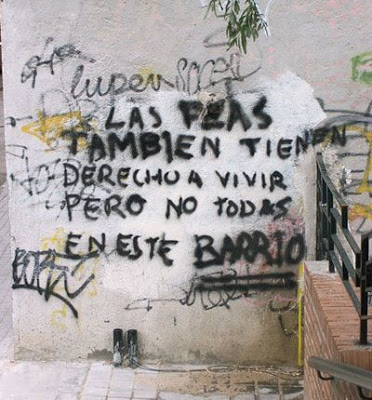 LAS FEAS
TAMBIEN TIENEN
DERECHO A VIVIR
PERO NO TODAS
EN ESTE BARRIO